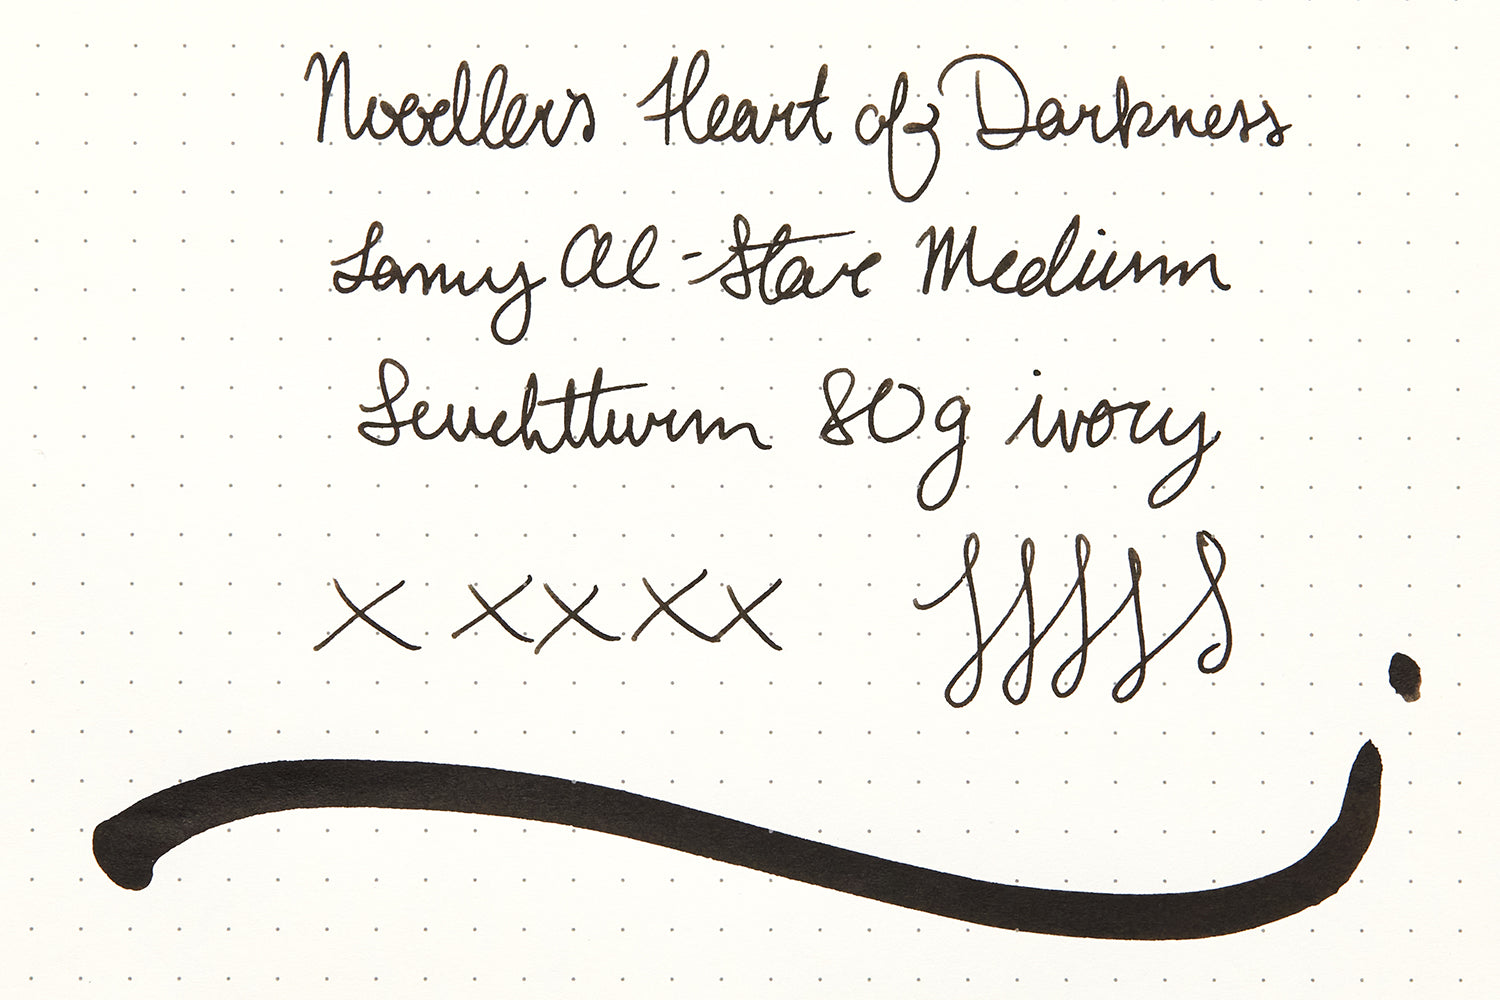 Noodler's Heart of Darkness
Lamy Al-Star Medium
Leuchtturm 80g ivory
x x x x x